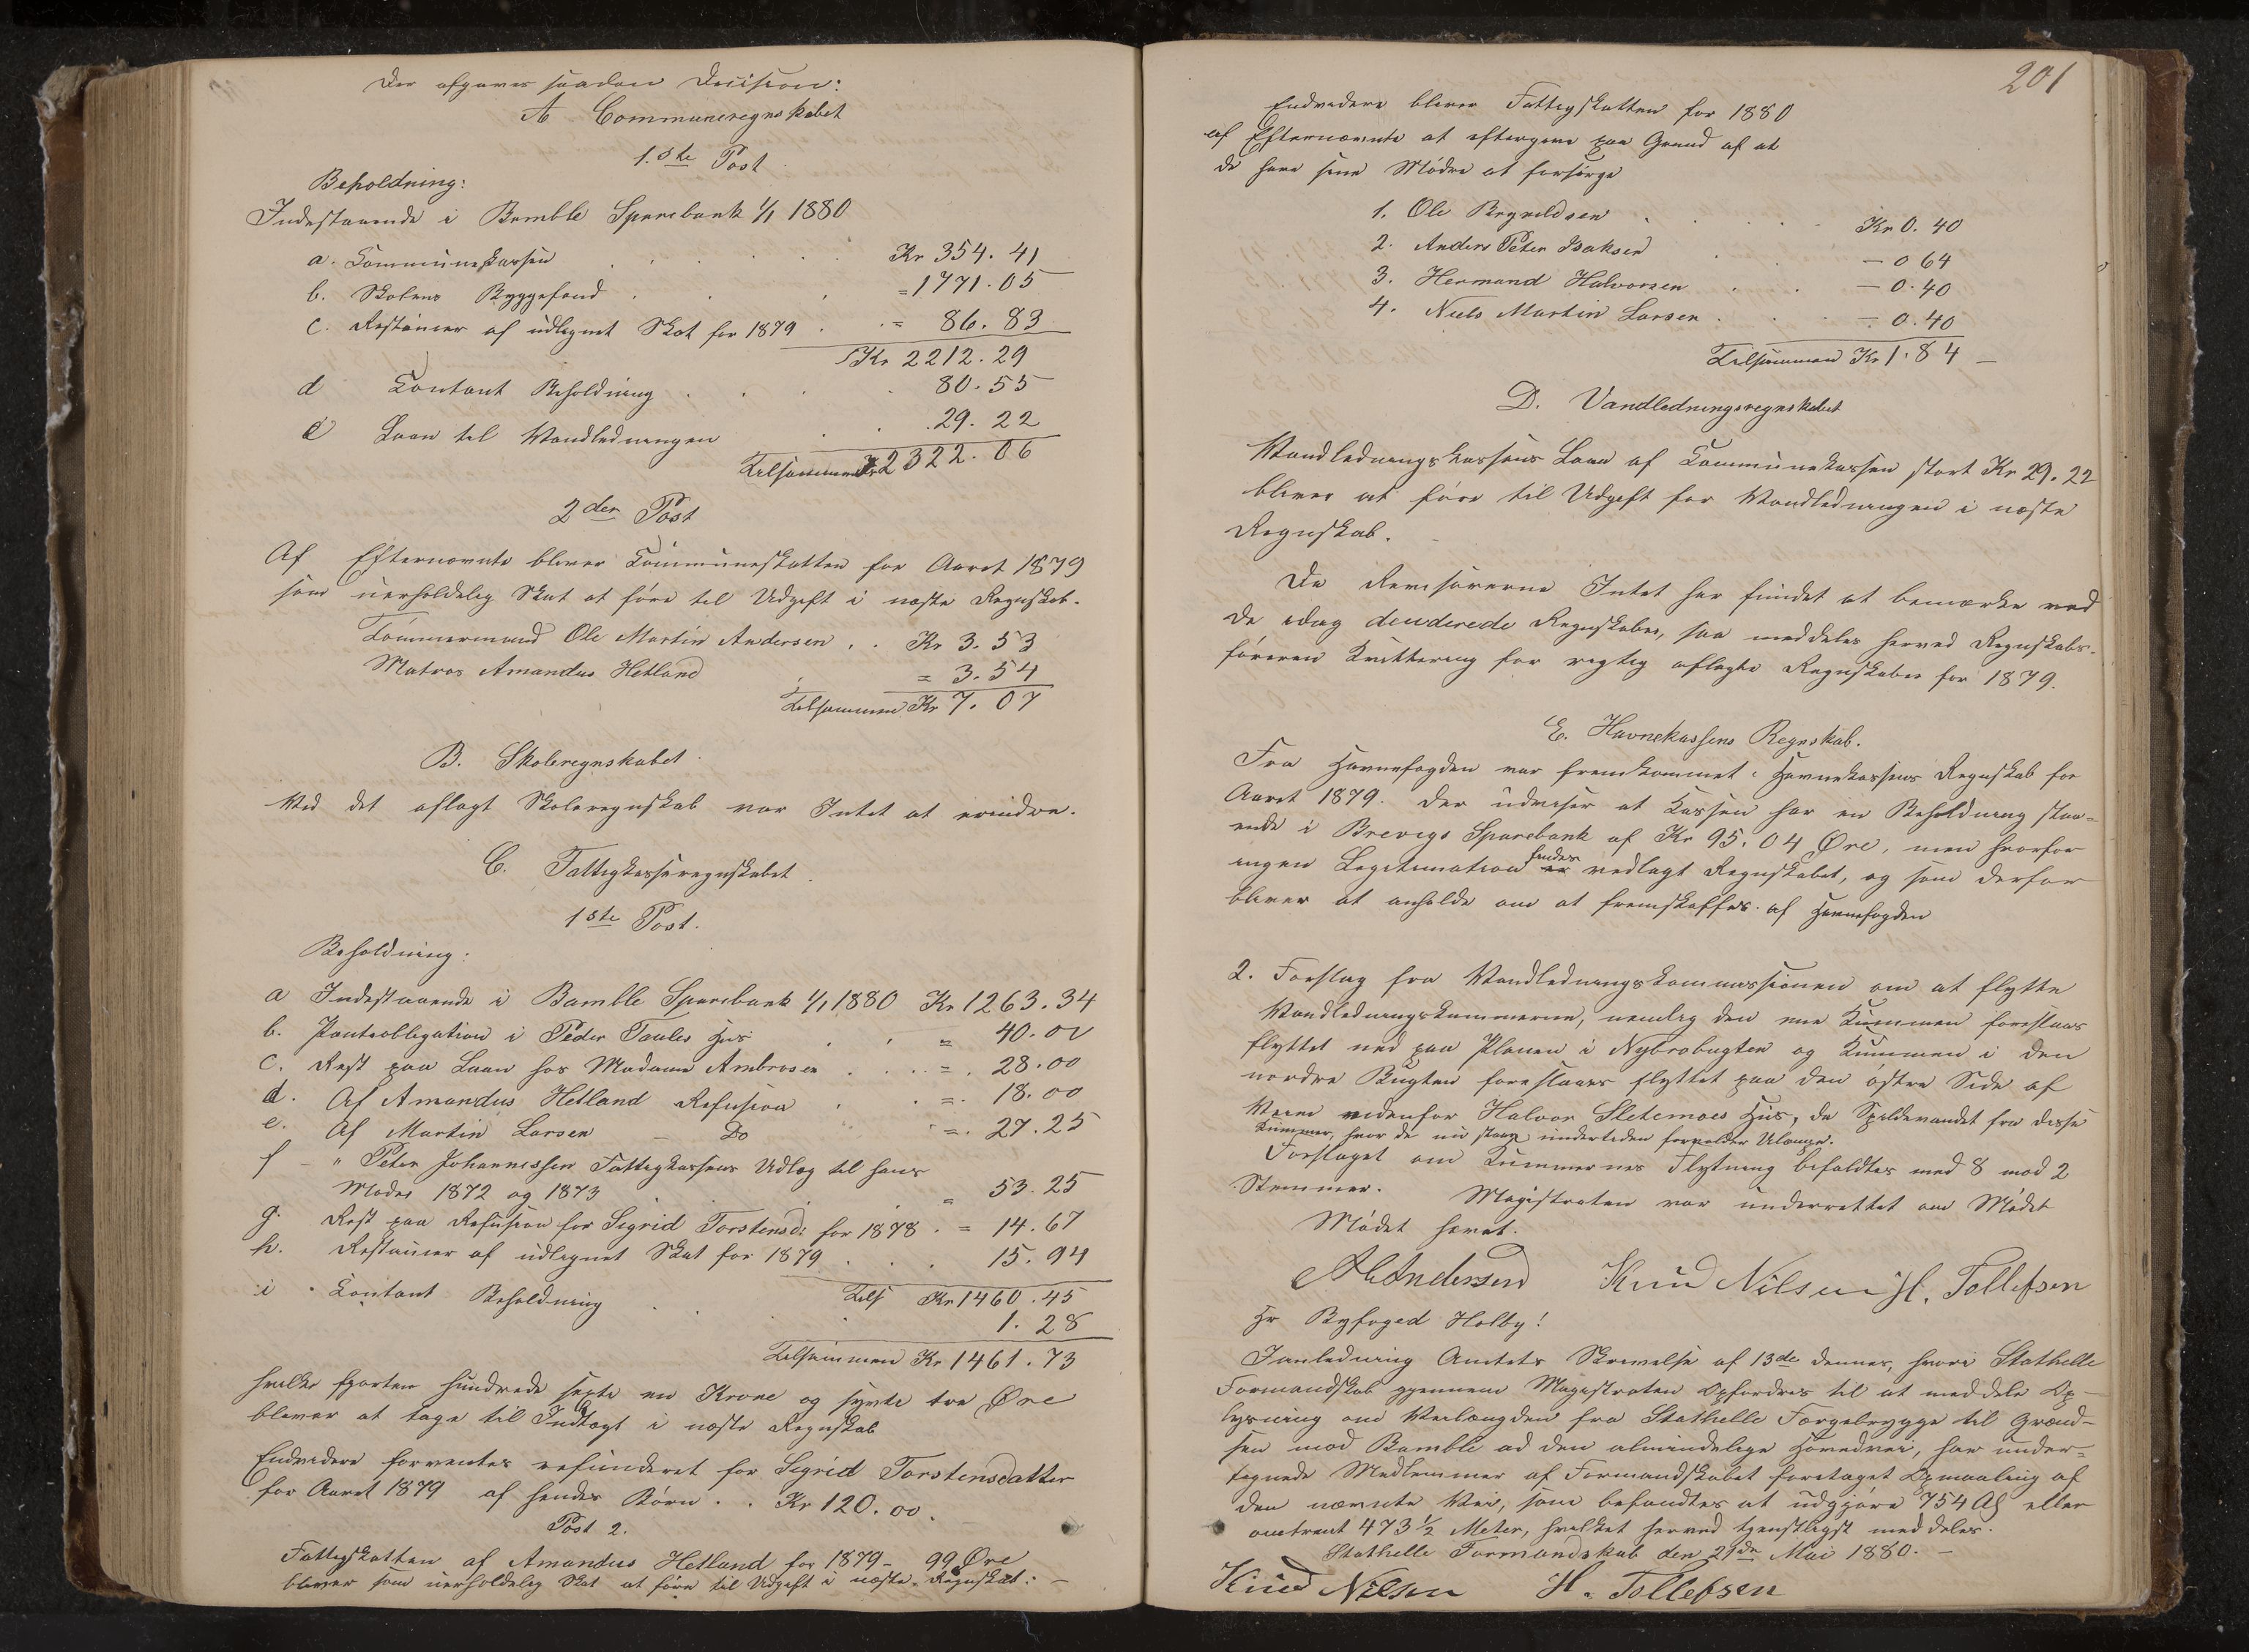 Der afgaves saadan Decision:
A Communeregnskabet
1.ste Post
Beholdning:
Indestaaende i Bamble Sparebank 1/1 1880
a. Communekassen Kr 354.41
b. Skolens Byggefond = 1771.05
c. Restancer af udlignet Skat for 1879 = 86.83
Kr 2212.29
d Contant Beholdning 80.55
e Laan til Vandledningen 29.22
Tilsammen Kr 2322.06
2den Post
Af Efternævnte bliver Communeskatten for Aaret 1879
som uerholdelig Skat at føre til Udgift i næste Regnskab.
Tømmermand Ole Martin Andersen . . Kr 3.53
Matros Amandus Hetland = 3.54
Tilsammen Kr 7.07
B. Skoleregnskabet.
Ved det aflagt Skoleregnskab var Intet at erindre.
C. Fattigkasseregnskabet.
1ste Post.
Beholdning:
a Indestaaende i Bamble Sparebank 1/1 1880 Kr 1263.34
b. Panteobligation i Peder Taules Hus = 40.00
c. Rest paa Laan hos Madame Ambrosen . . . = . 28.00
d. Af Amandus Hetland Refusion . . =. 18.00
e. Af Martin Larsen — Do =. 27.25
f — " Peter Johannessen Fattigkassens Udlæg til hans
Moder 1872 og 1873 = 53.25
g. Rest paa Refusion for Sigrid Torstensd: for 1878 . = 14.67
h. Restancer af udlignet Skat for 1879 . . . 15.94
Tils Kr 1460.45
i . Contant Beholdning . . . 1.28
Tilsammen Kr 1461.73
hvilke fjorten hundrede sexti en Krone og sytti tre Øre
bliver at tage til Indtægt i næste Regnskab
Endvidere forventes refunderet for Sigrid Torstensdatter
for Aaret 1879 af hendes Børn . . Kr 120.00.
Post 2.
Fattigskatten af Amandus Hetland for 1879 – 99 Øre
bliver som uerholdelig Skat at føre til Udgift i næste Regnskab: —
201
Endvidere bliver Fattigskatten for 1880
af Efternævnte at eftergive paa Grund af at
de have sine Mødre at forsørge
1. Ole Brynildsen . . . Kr 0.40
2. Anders Peter Isaksen . . — 0 64
3. Hermand Halvorsen . . — 0.40
4. Niels Martin Larsen . . — 0.40
Tilsammen Kr 1.84 —
D. Vandledningsregnskabet
Vandledningskassens Laan af Communekassen stort Kr 29.22
bliver at føre til Udgift for Vandledningen i næste
Regnskab.
Da Revisorerne Intet har fundet at bemærke ved
de idag deciderede Regnskaber, saa meddeles herved Regnskabs-
føreren Kvittering for rigtig aflagte Regnskaber for 1879.
E. Havnekassens Regnskab.
Fra Havnefogden var fremkommet Havnekassens Regnskab for
Aaret 1879. Der udviser at Kassen har en Beholdning staa=
ende i Brevigs Sparebank af Kr 95.04 Øre, men hvorfor
ingen Legitimation findes vedlagt Regnskabet, og som derfor
bliver at anholde om at fremskaffes af Havnefogden
2. Forslag fra Vandledningskommissionen om at flytte
Vandledningskummerne, nemlig den ene Kummen foreslaaes
flyttet ned paa Planen i Nybrobugten og Kummen i den
nordre Bugten foreslaaes flyttet paa den østre Side af
Veien nedenfor Halvor Sletemoes Hus, da Spildevandet fra disse
Kummer, hvor de nu staar, undertiden forvolder Ulempe.
Forslaget om Kummernes Flytning bifaldtes med 8 mod 2
Stemmer. Magistraten var underrettet om Mødet
Mødet hævet.
Andersen Knud Nilsen H. Tollefsen
Hr Byfoged Holby!
I Anledning Amtets Skrivelse af 13de dennes, hvori Stathelle
Formandskab gjennem Magistraten Opfordres til at meddele Op-
lysning om Veilængden fra Stathelle Færgebrygge til Grænd-
sen mod Bamble ad den almindelige Hovedvei, har under=
tegnede Medlemmer af Formandskabet foretaget Opmaaling af
den nævnte Vei, som befandtes at udgjøre 754 Al eller
omtrent 473 1/2 Meter, hvilket herved tjenstligst meddeles.
Stathelle Formandskab den 21de Mai 1880. —
Knud Nilsen H. Tollefsen